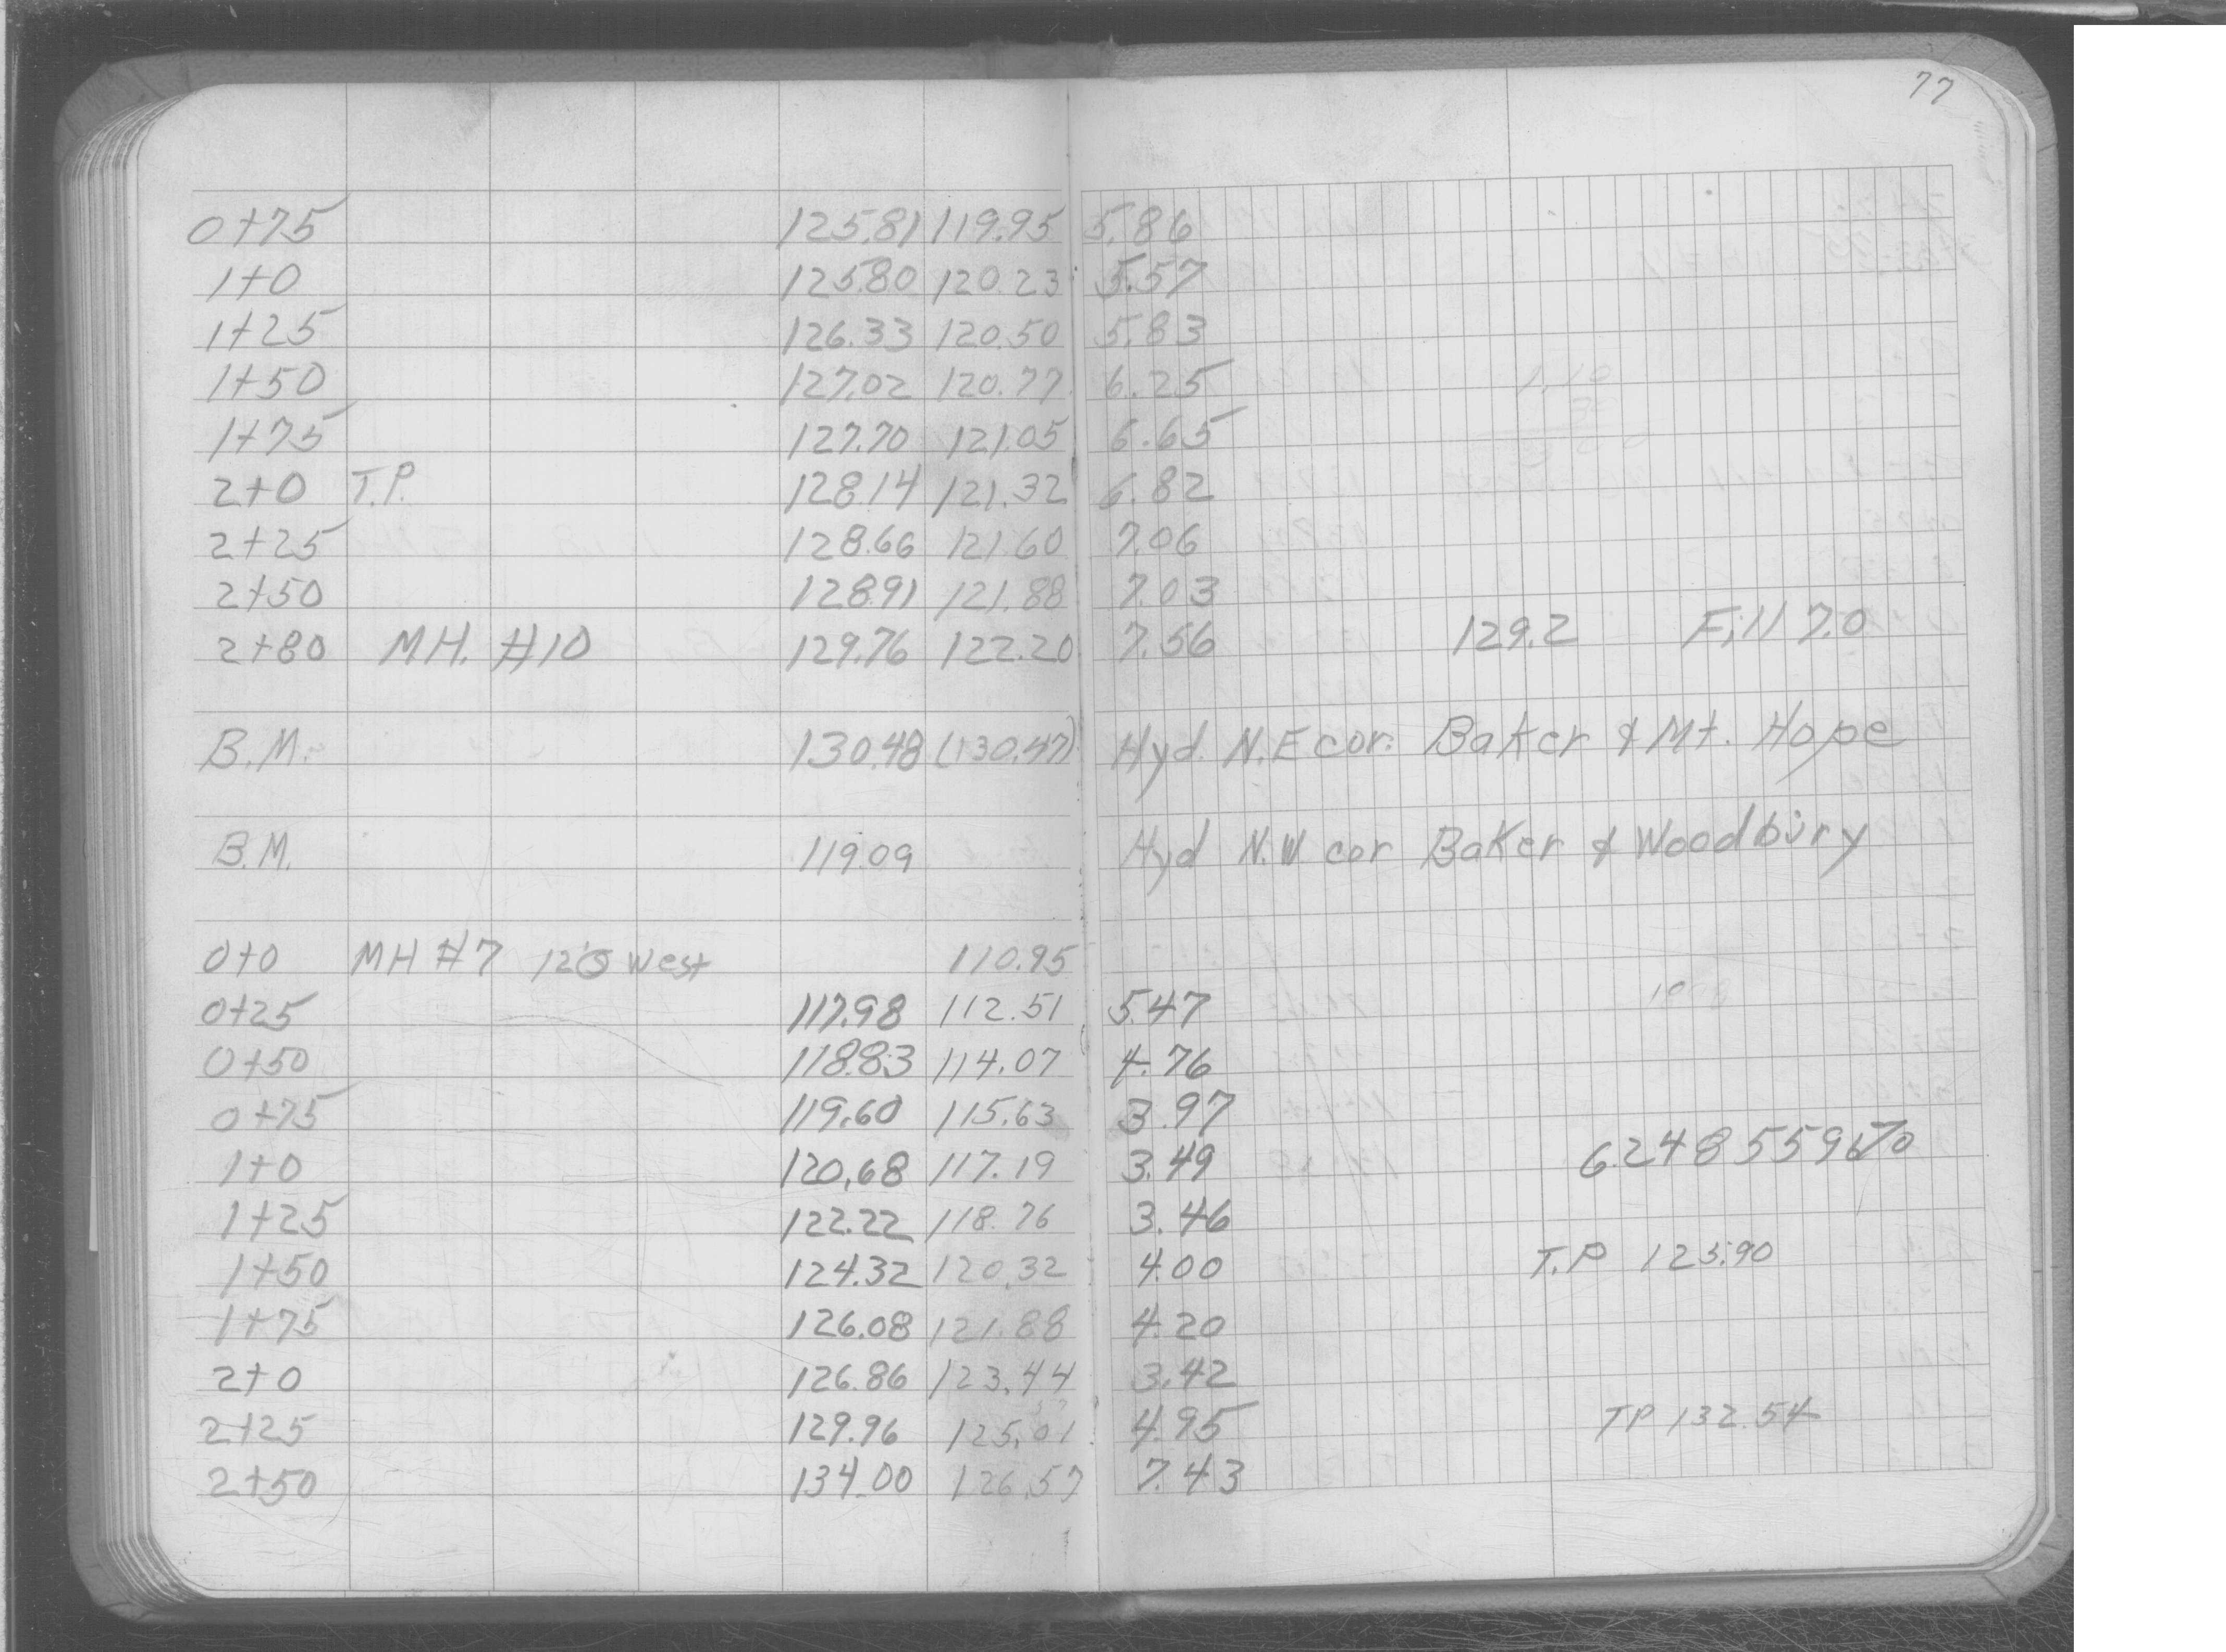 77
0+75 125.81 119.95 5.86
1+0 125.80 120.23 5.57
1+25 126.33 120.50 5.83
1+50 127.02 120.77 6.25
1+75 127.70 121.05 6.65
2+0 T.P. 128.14 121.32 6.82
2+25 128.66 121.60 7.06
2+50 128.91 121.88 7.03
2+80 MH. #10 129.76 122.20 7.56 129.2 Fill 7.0
B.M. 130.48 (130.47) Hyd. N.E cor. Baker & Mt. Hope
B.M. 119.09 Hyd N.W cor Baker & Woodbury
0+0 MH #7 West 110.95
0+25 117.98 112.51 5.47
0+50 118.83 114.07 4.76
0+75 119.60 115.63 3.97
1+0 120.68 117.19 3.49 6.2485596%
1+25 122.22 118.76 3.46
1+50 124.32 120.32 4.00 T.P 123.90
1+75 126.08 121.88 4.20
2+0 126.86 123.44 3.42
2+25 129.96 125.01 4.95 TP 132.54
2+50 134.00 126.57 7.43